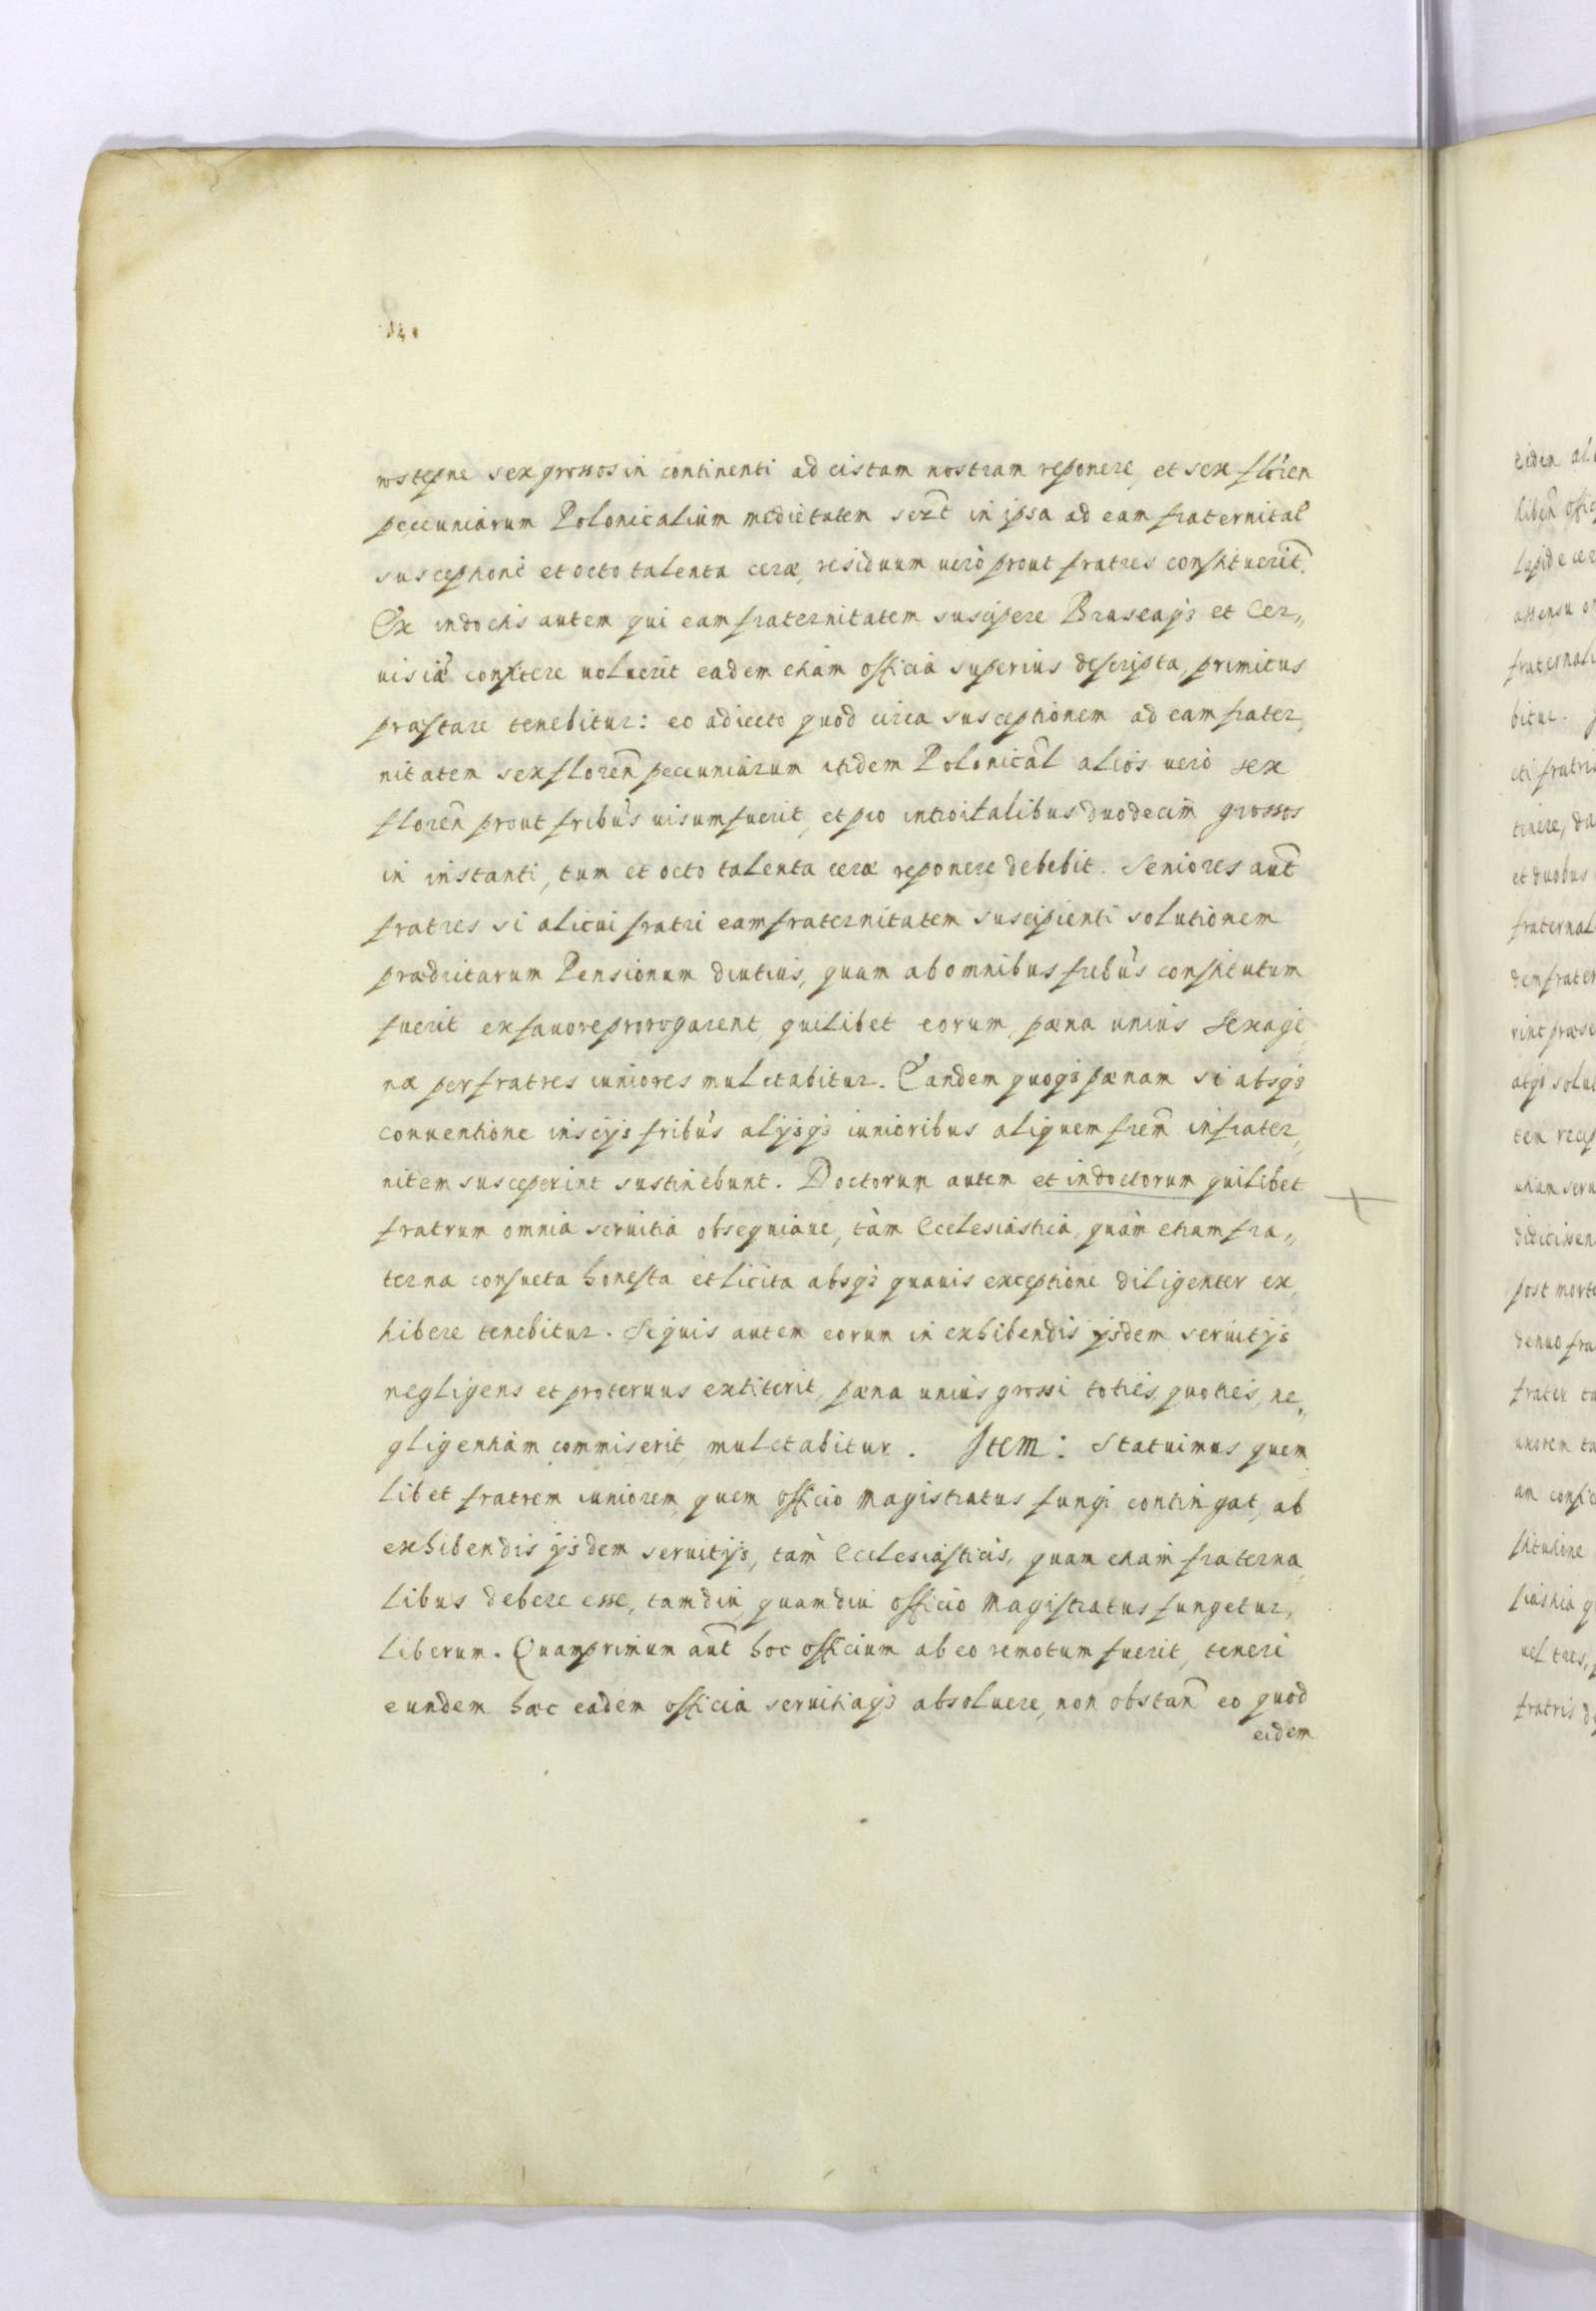 wstępne sex grossos in continenti ad cistam nostram reponere, et sex floren
pecuniarum Polonicalium medietatem scłt in ipsa ad eam fraternital
susceptione et octo talenta ceræ, residuum uerò prout fratres constituerit.
Ex indoctis autem qui eam fraternitatem suscipere Braseaqȝ et Cer„
uisia conficere uoluerit eadem etiam officia superius descripta, primitus
præstare tenebitur: eo adiecto quod circa susceptionem ad eam frater,
nitatem sex floren pecuniarum itidem Polonical alios uerò sex
floren prout fribus uisum fuerit, et pro introitalibus duodecim grossos
in instanti, tum et octo talenta ceræ reponere debebit. Seniores aut
fratres si alicui fratri eam fraternitatem suscipienti solutionem
prædictarum Pensionum diutius, quam ab omnibus fribus constitutum
fuerit ex fauore prorogarent, quilibet eorum, pæna unius Sexage,
næ per fratres iuniores mulctabitur. Eandem quoqȝ pænam si absqȝ
conuentione inscijs fribus alijsqȝ iunioribus aliquem frem in frater,
nitem susceperint sustinebunt. Doctorum autem et indoctorum quilibet
fratrum omnia seruitia obsequiaue, tàm Ecclesiastica, quàm etiam fra„
terna consueta honesta et licita absqȝ quauis exceptione diligenter ex,
hibere tenebitur. Siquis autem eorum in exhibendis ijsdem seruitijs
negligens et proteruus extiterit, pæna unius grossi toties, quoties, ne„
gligentiam commiserit, mulctabitur. Item: Statuimus quem,
libet fratrem iuniorem, quem officio Magistratus fungi contingat, ab
exhibendis ijsdem seruitijs, tàm Ecclesiasticis, quam etiam fraterna,
libus debere esse, tamdiu, quamdiu officio Magistratus fungetur,
liberum. Quamprimum aut hoc officium ab eo remotum fuerit, teneri
eundem hæc eadem officia seruitiaqȝ absoluere, non obstan eo quod
eidem